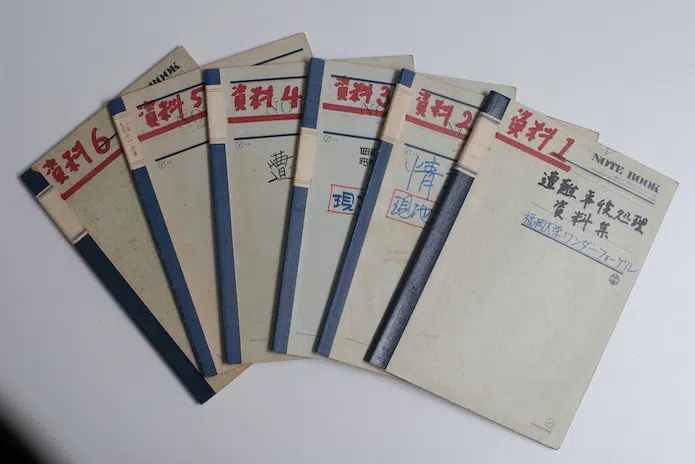 資料6
BOOK
資料5
資料4
遭
資料3
現
資料2
情
現地
資料1
NOTE BOOK
遭難事後処理
資料集
福岡大学ワンダーフォーゲル